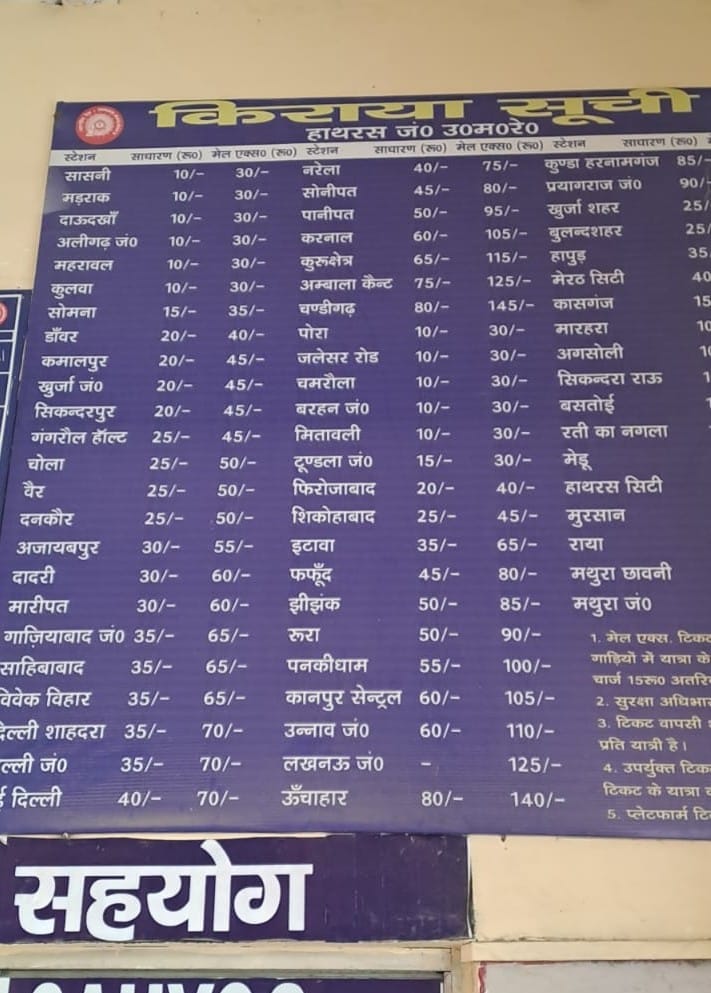 किराया सूची
हाथरस जं0 उ0म0रे0
स्टेशन साधारण (रू0) मेल एक्स0 (रू0) स्टेशन साधारण (रू0) मेल एक्स0 (रू0) स्टेशन साधारण (रू0)
सासनी 10/- 30/- नरेला 40/- 75/- कुण्डा हरनामगंज 85/-
मड़राक 10/- 30/- सोनीपत 45/- 80/- प्रयागराज जं0 90/-
दाऊदखाँ 10/- 30/- पानीपत 50/- 95/- खुर्जा शहर 25/
अलीगढ़ जं0 10/- 30/- करनाल 60/- 105/- बुलन्दशहर 25/
महरावल 10/- 30/- कुरूक्षेत्र 65/- 115/- हापुड़ 35
कुलवा 10/- 30/- अम्बाला कैन्ट 75/- 125/- मेरठ सिटी 40
सोमना 15/- 35/- चण्डीगढ़ 80/- 145/- कासगंज 15
डाँवर 20/- 40/- पोरा 10/- 30/- मारहरा 10
कमालपुर 20/- 45/- जलेसर रोड 10/- 30/- अगसोली
खुर्जा जं0 20/- 45/- चमरौला 10/- 30/- सिकन्दरा राऊ
सिकन्दरपुर 20/- 45/- बरहन जं0 10/- 30/- बस्तोई
गंगरौल हॉल्ट 25/- 45/- मितावली 10/- 30/- रती का नगला
चोला 25/- 50/- टूण्डला जं0 15/- 30/- मेडू
वैर 25/- 50/- फिरोजाबाद 20/- 40/- हाथरस सिटी
दनकौर 25/- 50/- शिकोहाबाद 25/- 45/- मुरसान
अजायबपुर 30/- 55/- इटावा 35/- 65/- राया
दादरी 30/- 60/- फफूँद 45/- 80/- मथुरा छावनी
मारीपत 30/- 60/- झींझक 50/- 85/- मथुरा जं0
गाज़ियाबाद जं0 35/- 65/- रूरा 50/- 90/-
साहिबाबाद 35/- 65/- पनकीधाम 55/- 100/-
विवेक विहार 35/- 65/- कानपुर सेन्ट्रल 60/- 105/-
दिल्ली शाहदरा 35/- 70/- उन्नाव जं0 60/- 110/-
ल्ली जं0 35/- 70/- लखनऊ जं0 - 125/-
ई दिल्ली 40/- 70/- ऊँचाहार 80/- 140/-
1. मेल एक्स. टिकट
गाड़ियों में यात्रा के
चार्ज 15रू0 अतरि
2. सुरक्षा अधिभार
3. टिकट वापसी
प्रति यात्री है।
4. उपर्युक्त टिक
टिकट के यात्रा
5. प्लेटफार्म टि
सहयोग